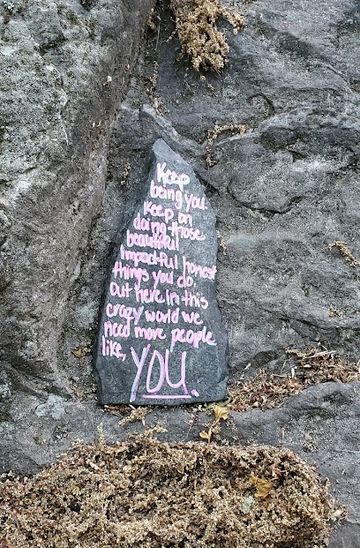 Keep
being you
Keep on
doing those
beautiful
impactful honest
things you do.
Out here in this
crazy world we
need more people
like, YOU.